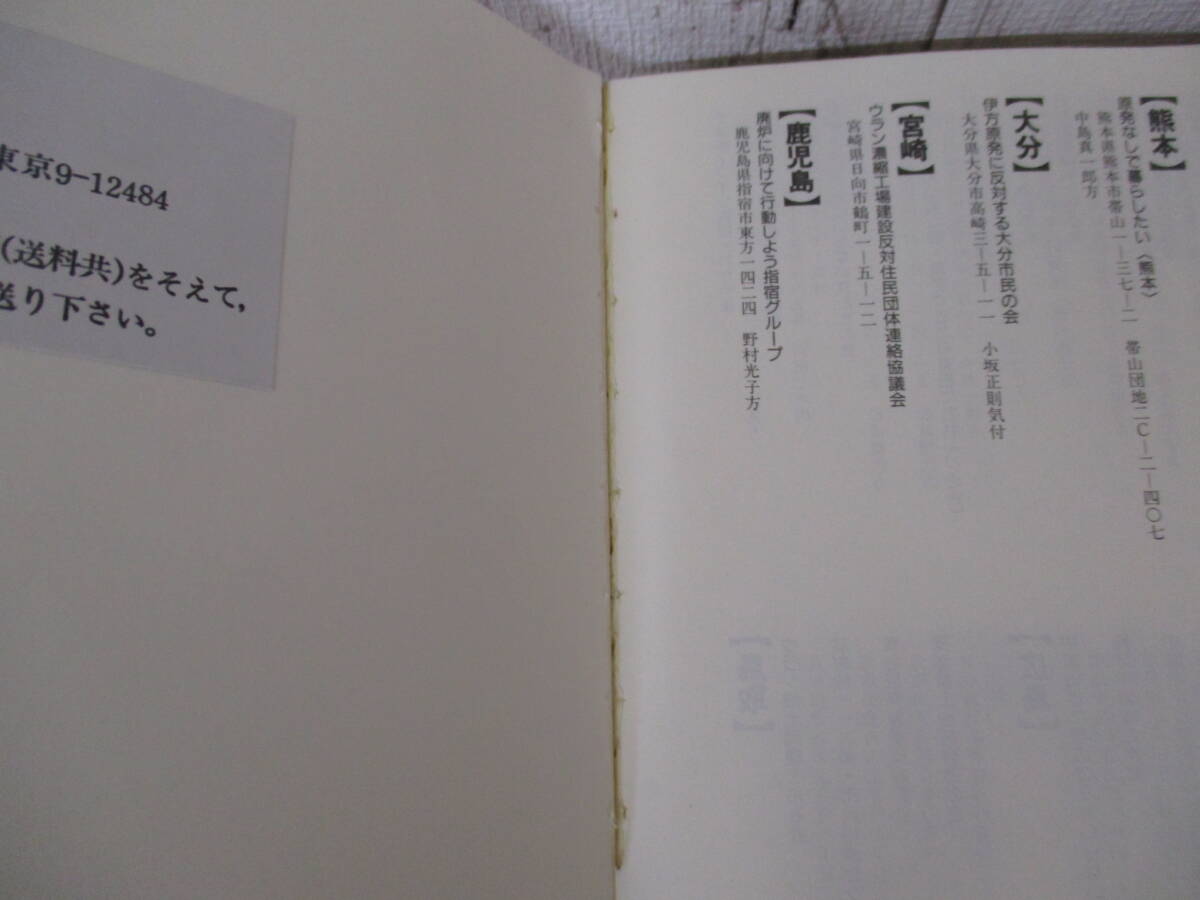 【熊本】
原発なしで暮らしたい〈熊本〉
熊本県熊本市帯山一—三七—二 帯山団地二C—二—四〇七
中島真一郎方
【大分】
伊方原発に反対する大分市民の会
大分県大分市高崎三—五—一一 小坂正則気付
【宮崎】
ウラン濃縮工場建設反対住民団体連絡協議会
宮崎県日向市鶴町一—五—一二
【鹿児島】
廃炉に向けて行動しよう指宿グループ
鹿児島県指宿市東方一四二四 野村光子方
東京9-12484
(送料共)をそえて,
送り下さい。